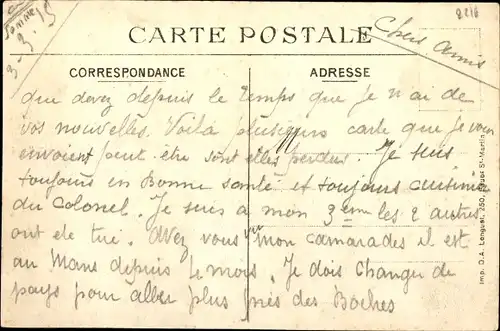 Somme
3-3-15
Chers Amis
2216
CARTE POSTALE
CORRESPONDANCE
ADRESSE
que devez depuis le temps que je n ai de
vos nouvelles. Voila plusieurs carte que je vous
envoient peut être sont elles perdus. Je suis
toujours en Bonne santé et toujours cuisinier
du Colonel. Je suis a mon 3 eme les 2 autres
ont ete tué. Avez vous vu mon camarades il est
au Mans depuis le mois. Je dois changer de
pays pour aller plus près des Boches
Imp. D.A. Longuet, 250, Faubg St-Martin